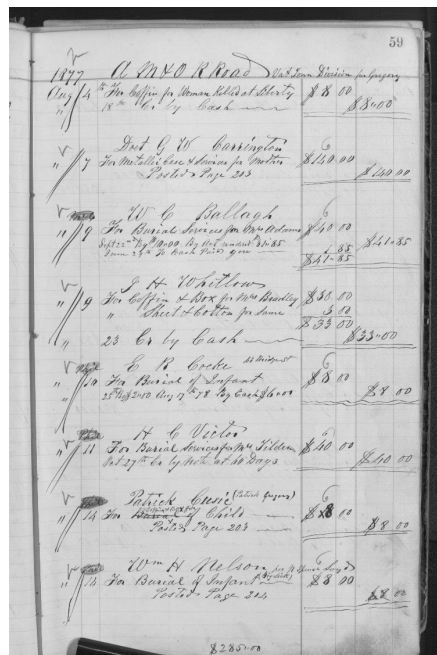 59
1877 A M & O R Road Va & Tenn Division per Gregory
Aug 4th For Coffin for Woman Killed at Liberty $8 00
" 18th Cr by Cash $8.00
Doct G W Carrington
" 7 For Metallic Case & Services for Mother $140 00
Posted Page 203 $140 00
W C Ballagh
" 9 For Burial Services for Mrs Adams $40 00
Sept 22nd By $10.00. By Act 1 85 $41.85
June $41.85
J H Whitlow
" 9 For Coffin & Box for Mrs Bradley $30 00
" Sheet & Cotton for Same 3 00
$33 00
23 Cr by Cash $33.00
E B Cocke
" 10 For Burial of Infant $8 00
25th By $2.00 Aug 17th 78 By Cash $6.00 $8 00
H C Victor
" 11 For Burial Services for Mrs Tilden $40 00
Oct 27th Cr by Note at 60 Days $40 00
Patrick Cusic (Patrick Gregory)
" 14 For Burial of Child $8 00
Posted Page 203 $8 00
Wm H Nelson
" 14 For Burial of Infant $8 00
Posted Page 204 $8 00
$285.00